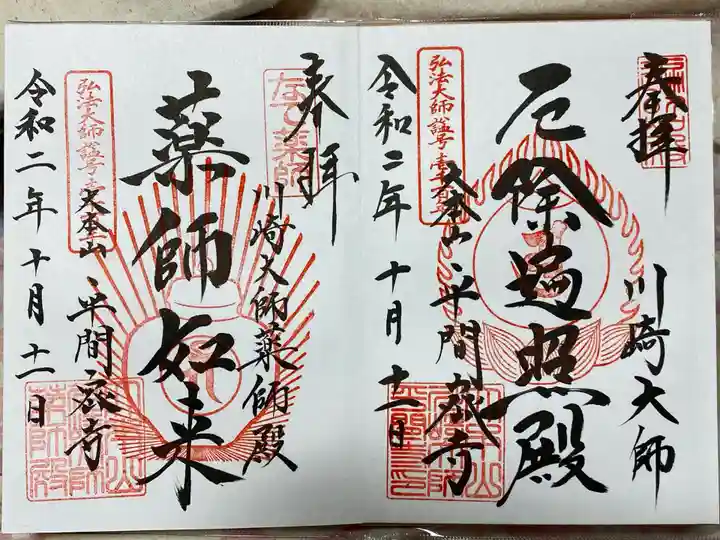 奉拝
川崎大師
厄除遍照殿
大本山 平間寺
弘法大師諡号壱千百年
令和二年十月十一日
奉拝
なで薬師
川崎大師薬師殿
薬師如来
弘法大師諡号壱
大本山 平間寺
令和二年十月十一日